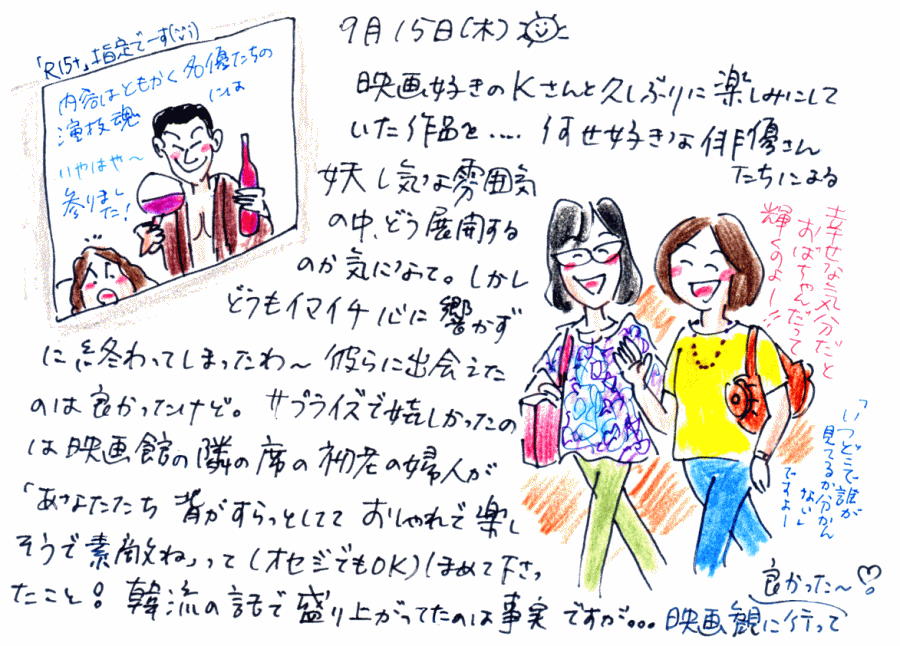 9月15日(木)
「R15+」指定でーす(^^;)
内容はともかく名優たちの
演技魂には
いやはや〜
参りまし
た!
映画好きのKさんと久しぶりに楽しみにして
いた作品を..... 何せ好きな俳優さん
たちによる
妖し気な雰囲気
の中、どう展開する
のか気になって。しかし
どうもイマイチ心に響かず
に終わってしまったわ〜 彼らに出会えた
のは良かったけど。サプライズで嬉しかったの
は映画館の隣の席の初老の婦人が
「あなたたち 背がすらっとしてて おしゃれで楽し
そうで素敵ね」って(オセジでもOK)ほめて下さっ
たこと! 韓流の話で盛り上がってたのは事実ですが...映画観に行って
良かった〜♡!
幸せな気分だと
おばちゃんだって
輝くのよー!!
「いつどこで誰が
見てるか分かん
ない」
ですよー